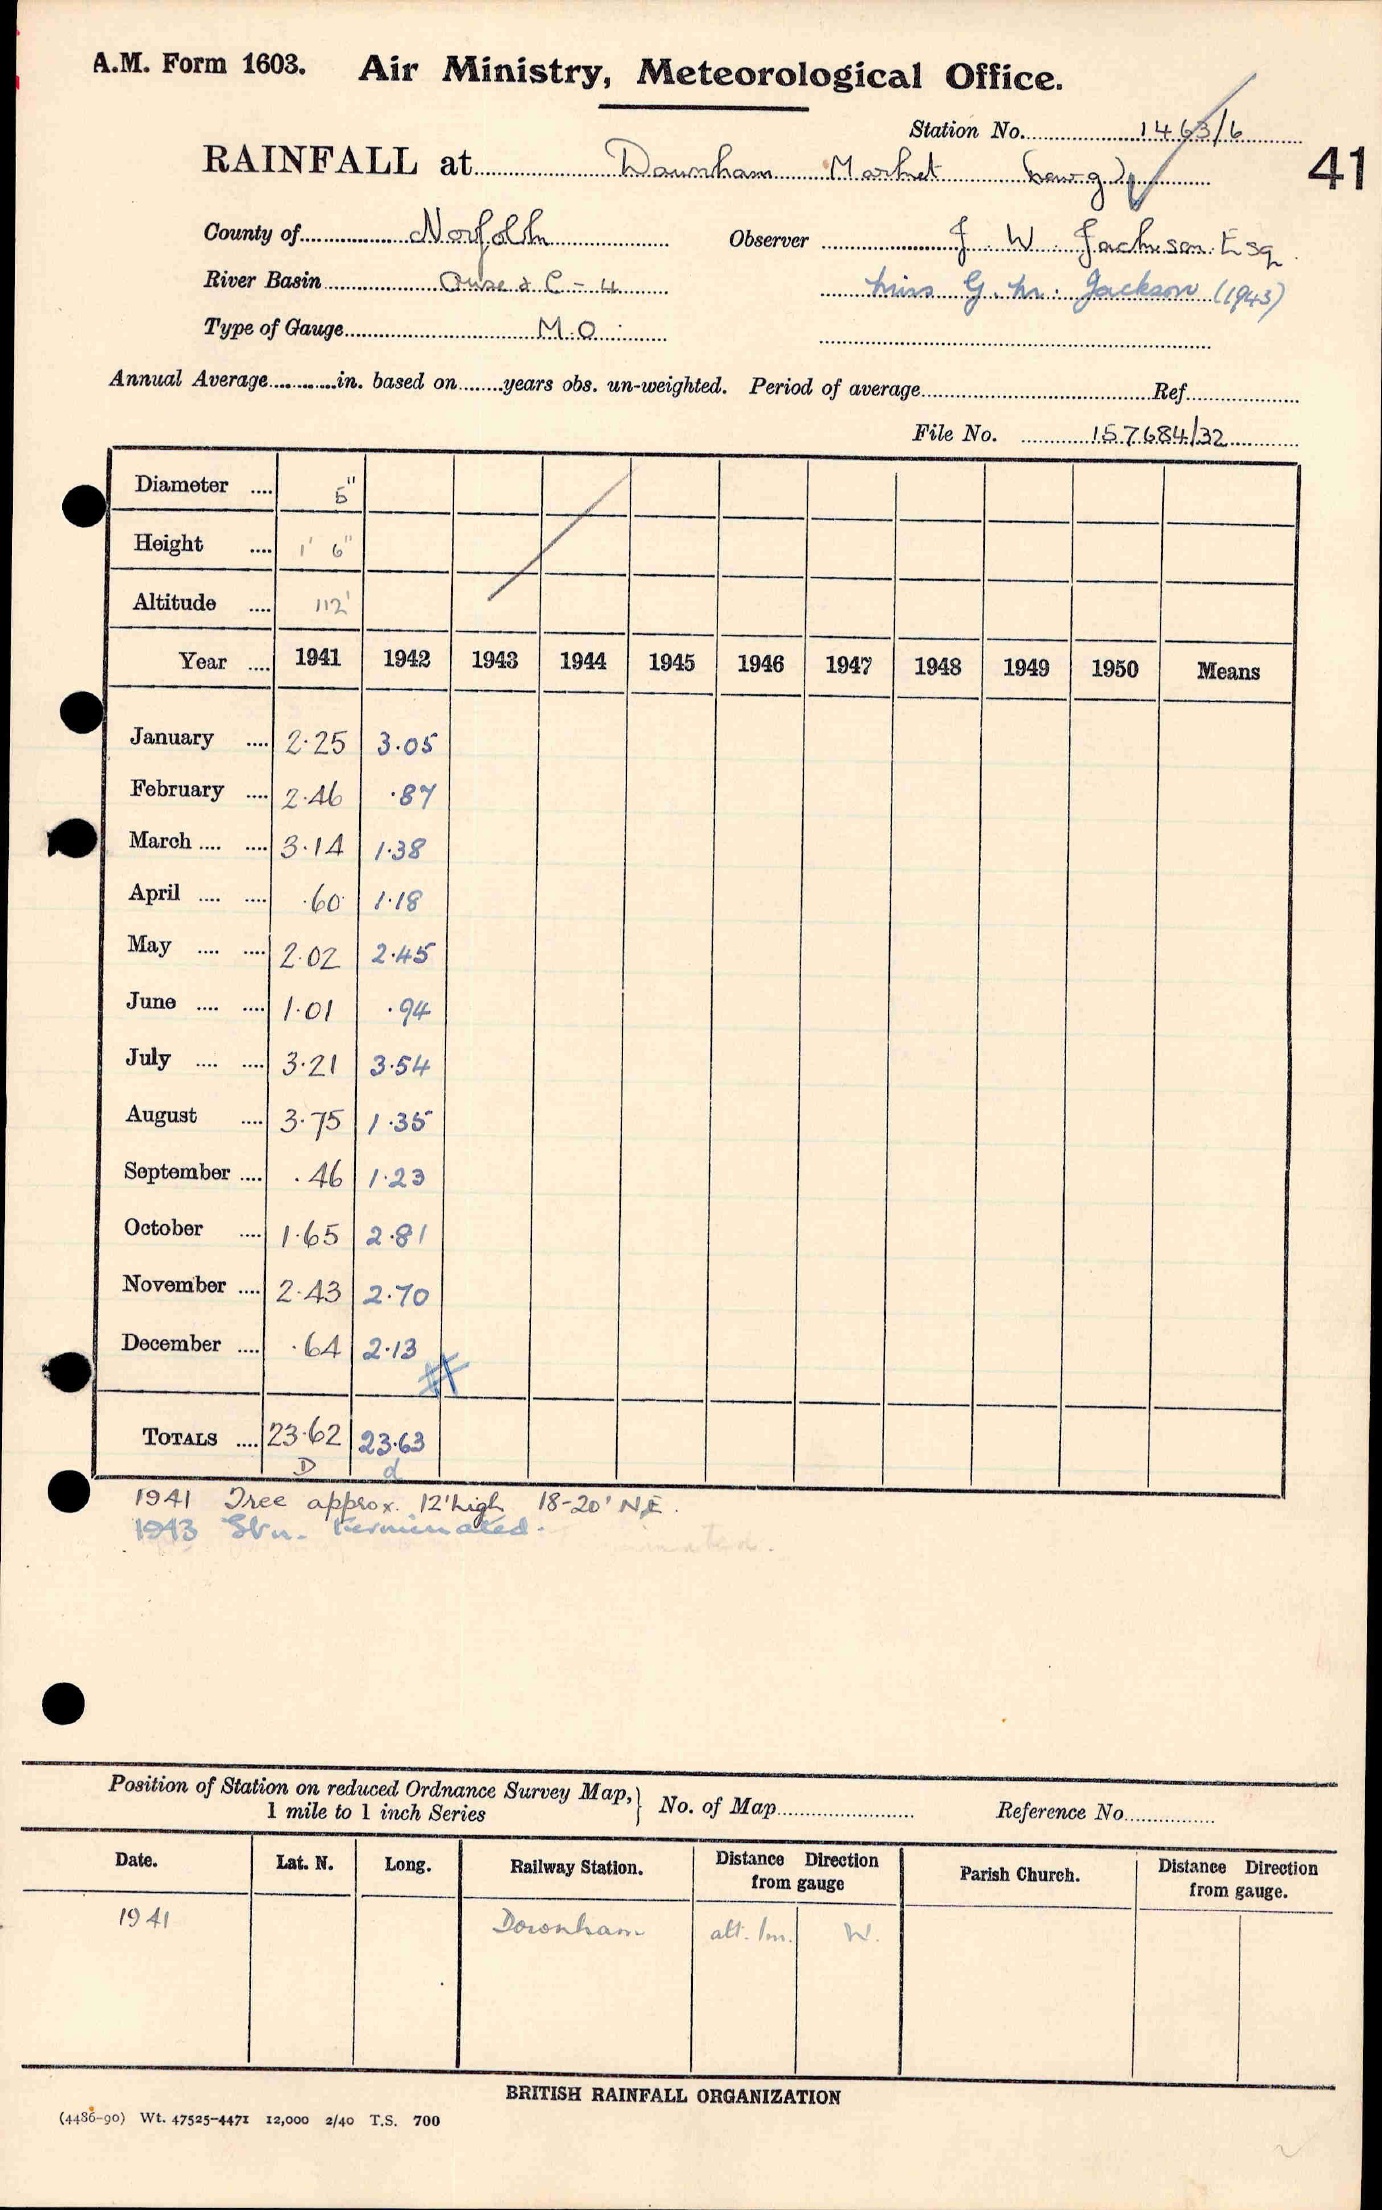 A.M. Form 1603. Air Ministry, Meteorological Office.
Station No. 1463/6
RAINFALL at Downham Market (new g) 41
County of Norfolk Observer J. W. Jackson Esq.
River Basin Ouse & C - 4 Miss G. M. Jackson (1943)
Type of Gauge M.O.
Annual Average in. based on years obs. un-weighted. Period of average Ref.
File No. 157684/32
Diameter .... 5"
Height .... 1' 6"
Altitude .... 112'
Year .... 1941 1942 1943 1944 1945 1946 1947 1948 1949 1950 Means
January .... 2.25 3.05
February .... 2.46 .87
March .... .... 3.14 1.38
April .... .... .60 1.18
May .... .... 2.02 2.45
June .... .... 1.01 .94
July .... .... 3.21 3.54
August .... 3.75 1.35
September .... .46 1.23
October .... 1.65 2.81
November .... 2.43 2.70
December .... .64 2.13
TOTALS .... 23.62 23.63
D d
1941 Tree approx. 12' high 18-20' N.E.
1943 Stn. terminated.
Position of Station on reduced Ordnance Survey Map,} No. of Map Reference No.
1 mile to 1 inch Series
Date. Lat. N. Long. Railway Station. Distance Direction from gauge Parish Church. Distance Direction from gauge.
1941 Downham alt. 1m. W.
BRITISH RAINFALL ORGANIZATION
(4486-90) Wt. 47525-4471 12,000 2/40 T.S. 700